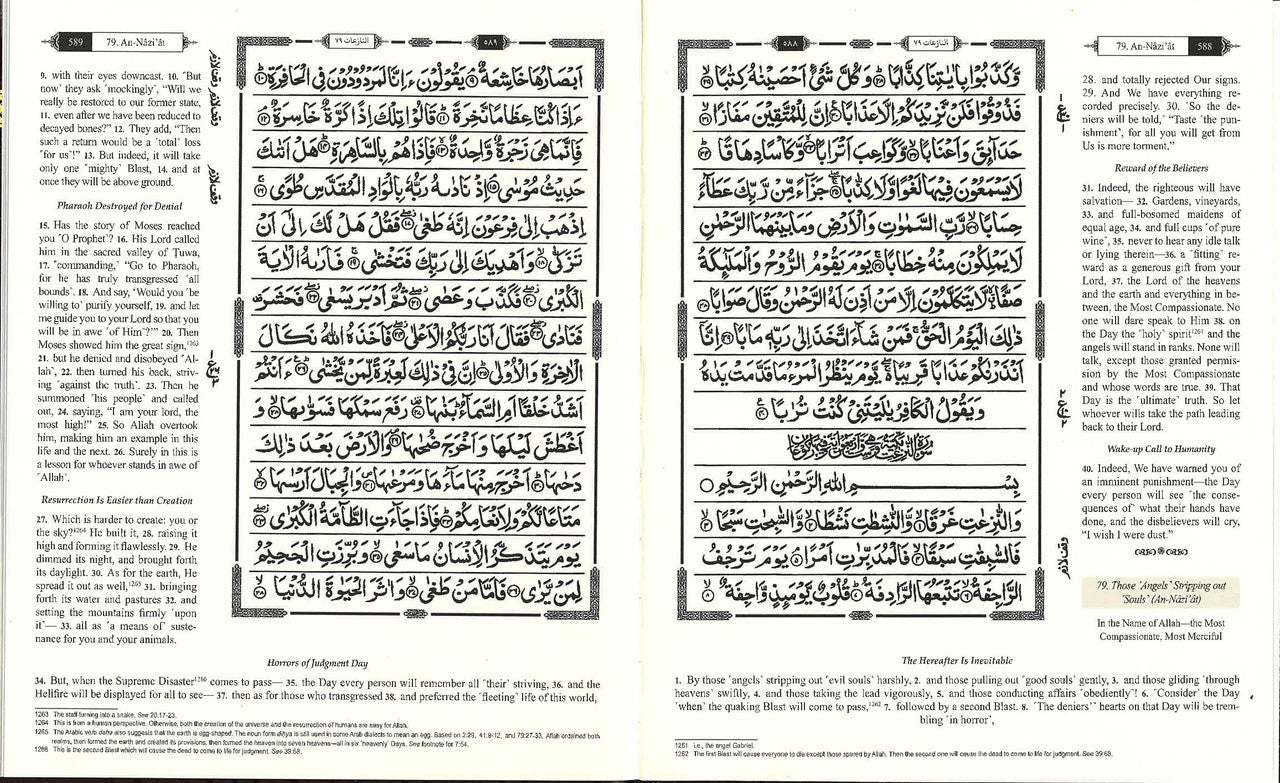 79. An-Nâzi'ât 588
النازعات ٧٩
٥٨٨
وَّكَذَّبُوْا بِاٰيٰتِنَا كِذَّابًا ۟ وَكُلَّ شَيْءٍ اَحْصَيْنٰهُ كِتٰبًا ۟
فَذُوْقُوْا فَلَنْ نَّزِيْدَكُمْ اِلَّا عَذَابًا ۟ اِنَّ لِلْمُتَّقِيْنَ مَفَازًا ۟
حَدَآئِقَ وَاَعْنَابًا ۟ وَّكَوَاعِبَ اَتْرَابًا ۟ وَّكَاْسًا دِهَاقًا ۟
لَا يَسْمَعُوْنَ فِيْهَا لَغْوًا وَّلَا كِذّٰبًا ۟ جَزَآءً مِّنْ رَّبِّكَ عَطَآءً
حِسَابًا ۟ رَّبِّ السَّمٰوٰتِ وَالْاَرْضِ وَمَا بَيْنَهُمَا الرَّحْمٰنِ
لَا يَمْلِكُوْنَ مِنْهُ خِطَابًا ۟ يَوْمَ يَقُوْمُ الرُّوْحُ وَالْمَلٰٓئِكَةُ
صَفًّا لَّا يَتَكَلَّمُوْنَ اِلَّا مَنْ اَذِنَ لَهُ الرَّحْمٰنُ وَقَالَ صَوَابًا ۟
ذٰلِكَ الْيَوْمُ الْحَقُّ فَمَنْ شَآءَ اتَّخَذَ اِلٰى رَبِّهٖ مَاٰبًا ۟ اِنَّآ
اَنْذَرْنٰكُمْ عَذَابًا قَرِيْبًا يَّوْمَ يَنْظُرُ الْمَرْءُ مَا قَدَّمَتْ يَدٰهُ
وَيَقُوْلُ الْكٰفِرُ يٰلَيْتَنِيْ كُنْتُ تُرٰبًا ۟
بِسْمِ اللّٰهِ الرَّحْمٰنِ الرَّحِيْمِ
وَالنّٰزِعٰتِ غَرْقًا ۟ وَّالنّٰشِطٰتِ نَشْطًا ۟ وَّالسّٰبِحٰتِ سَبْحًا ۟
فَالسّٰبِقٰتِ سَبْقًا ۟ فَالْمُدَبِّرٰتِ اَمْرًا ۟ يَوْمَ تَرْجُفُ
الرَّاجِفَةُ ۟ تَتْبَعُهَا الرَّادِفَةُ ۟ قُلُوْبٌ يَّوْمَئِذٍ وَّاجِفَةٌ ۟
28. and totally rejected Our signs.
29. And We have everything re-
corded precisely. 30. ˹So the de-
niers will be told,˺ “Taste ˹the pun-
ishment˺, for all you will get from
Us is more torment.”
Reward of the Believers
31. Indeed, the righteous will have
salvation— 32. Gardens, vineyards,
33. and full-bosomed maidens of
equal age, 34. and full cups ˹of pure
wine˺, 35. never to hear any idle talk
or lying therein—36. a ˹fitting˺ re-
ward as a generous gift from your
Lord, 37. the Lord of the heavens
and the earth and everything in be-
tween, the Most Compassionate. No
one will dare speak to Him 38. on
the Day the ˹holy˺ spirit1261 and the
angels will stand in ranks. None will
talk, except those granted permis-
sion by the Most Compassionate
and whose words are true. 39. That
Day is the ˹ultimate˺ truth. So let
whoever wills take the path leading
back to their Lord.
Wake-up Call to Humanity
40. Indeed, We have warned you of
an imminent punishment—the Day
every person will see ˹the conse-
quences of˺ what their hands have
done, and the disbelievers will cry,
“I wish I were dust.”
79. Those ˹Angels˺ Stripping out
˹Souls˺ (An-Nâzi'ât)
In the Name of Allah—the Most
Compassionate, Most Merciful
The Hereafter Is Inevitable
1. By those ˹angels˺ stripping out ˹evil souls˺ harshly, 2. and those pulling out ˹good souls˺ gently, 3. and those gliding ˹through
heavens˺ swiftly, 4. and those taking the lead vigorously, 5. and those conducting affairs ˹obediently˺! 6. ˹Consider˺ the Day
˹when˺ the quaking Blast will come to pass,1262 7. followed by a second Blast. 8. ˹The deniers'˺ hearts on that Day will be trem-
bling ˹in horror˺,
1261 i.e., the angel Gabriel.
1262 The first Blast will cause everyone to die except those spared by Allah. Then the second one will cause the dead to come to life for judgment. See 39:68.
589 79. An-Nâzi'ât
النازعات ٧٩
٥٨٩
اَبْصَارُهَا خَاشِعَةٌ ۟ يَقُوْلُوْنَ ءَاِنَّا لَمَرْدُوْدُوْنَ فِي الْحَافِرَةِ ۟
ءَاِذَا كُنَّا عِظَامًا نَّخِرَةً ۟ قَالُوْا تِلْكَ اِذًا كَرَّةٌ خَاسِرَةٌ ۟
فَاِنَّمَا هِيَ زَجْرَةٌ وَّاحِدَةٌ ۟ فَاِذَا هُمْ بِالسَّاهِرَةِ ۟ هَلْ اَتٰىكَ
حَدِيْثُ مُوْسٰى ۟ اِذْ نَادٰىهُ رَبُّهٗ بِالْوَادِ الْمُقَدَّسِ طُوًى ۟
اِذْهَبْ اِلٰى فِرْعَوْنَ اِنَّهٗ طَغٰى ۟ فَقُلْ هَلْ لَّكَ اِلٰٓى اَنْ
تَزَكّٰى ۟ وَاَهْدِيَكَ اِلٰى رَبِّكَ فَتَخْشٰى ۟ فَاَرٰىهُ الْاٰيَةَ
الْكُبْرٰى ۟ فَكَذَّبَ وَعَصٰى ۟ ثُمَّ اَدْبَرَ يَسْعٰى ۟ فَحَشَرَ
فَنَادٰى ۟ فَقَالَ اَنَا رَبُّكُمُ الْاَعْلٰى ۟ فَاَخَذَهُ اللّٰهُ نَكَالَ
الْاٰخِرَةِ وَالْاُوْلٰى ۟ اِنَّ فِيْ ذٰلِكَ لَعِبْرَةً لِّمَنْ يَّخْشٰى ۟ ءَاَنْتُمْ
اَشَدُّ خَلْقًا اَمِ السَّمَآءُ بَنٰىهَا ۟ رَفَعَ سَمْكَهَا فَسَوّٰىهَا ۟ وَ
اَغْطَشَ لَيْلَهَا وَاَخْرَجَ ضُحٰىهَا ۟ وَالْاَرْضَ بَعْدَ ذٰلِكَ
دَحٰىهَا ۟ اَخْرَجَ مِنْهَا مَآءَهَا وَمَرْعٰىهَا ۟ وَالْجِبَالَ اَرْسٰىهَا ۟
مَتَاعًا لَّكُمْ وَلِاَنْعَامِكُمْ ۟ فَاِذَا جَآءَتِ الطَّآمَّةُ الْكُبْرٰى ۟
يَوْمَ يَتَذَكَّرُ الْاِنْسَانُ مَا سَعٰى ۟ وَبُرِّزَتِ الْجَحِيْمُ
لِمَنْ يَّرٰى ۟ فَاَمَّا مَنْ طَغٰى ۟ وَاٰثَرَ الْحَيٰوةَ الدُّنْيَا ۟
9. with their eyes downcast. 10. ˹But
now˺ they ask ˹mockingly˺, “Will we
really be restored to our former state,
11. even after we have been reduced to
decayed bones?” 12. They add, “Then
such a return would be a ˹total˺ loss
˹for us˺!” 13. But indeed, it will take
only one ˹mighty˺ Blast, 14. and at
once they will be above ground.
Pharaoh Destroyed for Denial
15. Has the story of Moses reached
you ˹O Prophet˺? 16. His Lord called
him in the sacred valley of Ṭuwa,
17. ˹commanding,˺ “Go to Pharaoh,
for he has truly transgressed ˹all
bounds˺. 18. And say, ‘Would you ˹be
willing to˺ purify yourself, 19. and let
me guide you to your Lord so that you
will be in awe ˹of Him˺?’” 20. Then
Moses showed him the great sign,1263
21. but he denied and disobeyed ˹Al-
lah˺, 22. then turned his back, striv-
ing ˹against the truth˺. 23. Then he
summoned ˹his people˺ and called
out, 24. saying, “I am your lord, the
most high!” 25. So Allah overtook
him, making him an example in this
life and the next. 26. Surely in this is
a lesson for whoever stands in awe of
˹Allah˺.
Resurrection Is Easier than Creation
27. Which is harder to create: you or
the sky?1264 He built it, 28. raising it
high and forming it flawlessly. 29. He
dimmed its night, and brought forth
its daylight. 30. As for the earth, He
spread it out as well,1265 31. bringing
forth its water and pastures 32. and
setting the mountains firmly ˹upon
it˺— 33. all as ˹a means of˺ suste-
nance for you and your animals.
Horrors of Judgment Day
34. But, when the Supreme Disaster1266 comes to pass— 35. the Day every person will remember all ˹their˺ striving, 36. and the
Hellfire will be displayed for all to see— 37. then as for those who transgressed 38. and preferred the ˹fleeting˺ life of this world,
1263 The staff turning into a snake. See 20:17-23.
1264 This is from a human perspective. Otherwise, both the creation of the universe and the resurrection of humans are easy for Allah.
1265 The Arabic verb daḥa also suggests that the earth is egg-shaped. The noun form diḥya is still used in some Arab dialects to mean an egg. Based on 2:29, 41:9-12, and 79:27-33, Allah ordained both
realms, then formed the earth and created its provisions, then formed the heaven into seven heavens—all in six ˹heavenly˺ Days. See footnote for 7:54.
1266 This is the second Blast which will cause the dead to come to life for judgment. See 39:68.